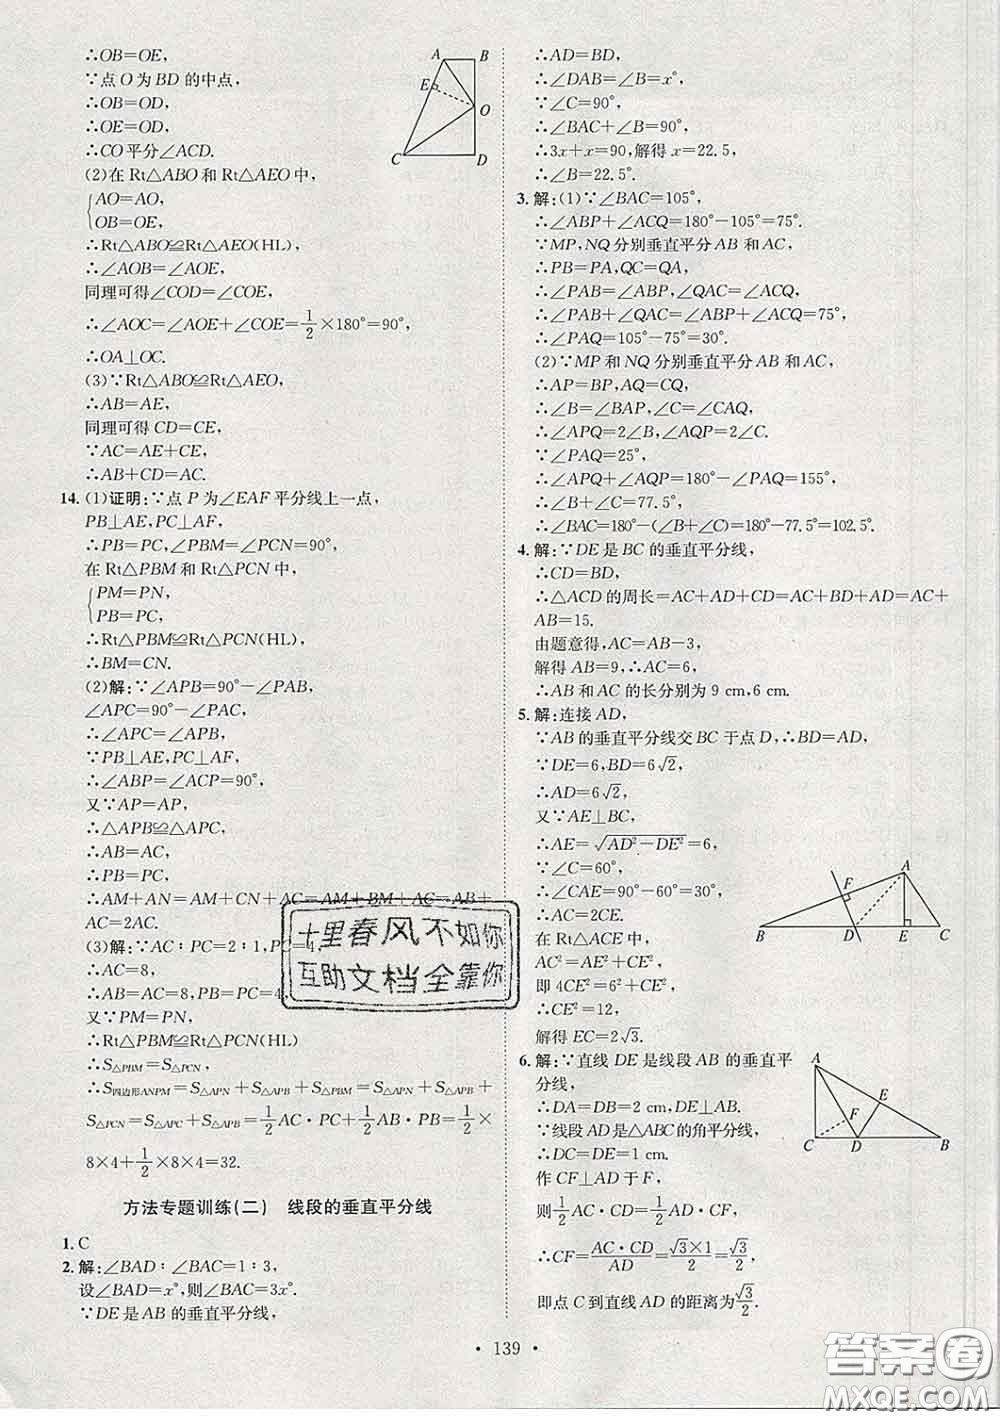 ∴OB=OE,
∵点 O 为 BD 的中点,
∴OB=OD,
∴OE=OD,
∴CO 平分∠ACD.
(2)在 Rt△ABO 和 Rt△AEO 中,
{AO=AO,
OB=OE,
∴Rt△ABO≌Rt△AEO(HL),
∴∠AOB=∠AOE,
同理可得∠COD=∠COE,
∴∠AOC=∠AOE+∠COE=1/2×180°=90°,
∴OA⊥OC.
(3)∵Rt△ABO≌Rt△AEO,
∴AB=AE,
同理可得 CD=CE,
∵AC=AE+CE,
∴AB+CD=AC.
14. (1)证明:∵点 P 为∠EAF 平分线上一点,
PB⊥AE,PC⊥AF,
∴PB=PC,∠PBM=∠PCN=90°,
在 Rt△PBM 和 Rt△PCN 中,
{PM=PN,
PB=PC,
∴Rt△PBM≌Rt△PCN(HL),
∴BM=CN.
(2)解:∵∠APB=90°-∠PAB,
∠APC=90°-∠PAC,
∴∠APC=∠APB,
∵PB⊥AE,PC⊥AF,
∴∠ABP=∠ACP=90°,
又∵AP=AP,
∴△APB≌△APC,
∴AB=AC,
∴PB=PC,
∴AM+AN=AM+CN+AC=AM+BM+AC=AB+
AC=2AC.
(3)解:∵AC∶PC=2∶1,PC=4,
∴AC=8,
∴AB=AC=8,PB=PC=4,
又∵PM=PN,
∴Rt△PBM≌Rt△PCN(HL),
∴S△PBM=S△PCN,
∴S四边形ANPM=S△APN+S△APB+S△PBM=S△APN+S△APB+
S△PCN=S△APC+S△APB=1/2AC·PC+1/2AB·PB=1/2×
8×4+1/2×8×4=32.
方法专题训练(二) 线段的垂直平分线
1. C
2. 解:∠BAD∶∠BAC=1∶3,
设∠BAD=x°,则∠BAC=3x°.
∵DE 是 AB 的垂直平分线,
A
B
E
O
C
D
∴AD=BD,
∴∠DAB=∠B=x°.
∵∠C=90°,
∴∠BAC+∠B=90°,
∴3x+x=90,解得 x=22.5,
∴∠B=22.5°.
3. 解:(1)∵∠BAC=105°,
∴∠ABP+∠ACQ=180°-105°=75°.
∵MP,NQ 分别垂直平分 AB 和 AC,
∴PB=PA,QC=QA,
∴∠PAB=∠ABP,∠QAC=∠ACQ,
∴∠PAB+∠QAC=∠ABP+∠ACQ=75°,
∴∠PAQ=105°-75°=30°.
(2)∵MP 和 NQ 分别垂直平分 AB 和 AC,
∴AP=BP,AQ=CQ,
∴∠B=∠BAP,∠C=∠CAQ,
∴∠APQ=2∠B,∠AQP=2∠C.
∵∠PAQ=25°,
∴∠APQ+∠AQP=180°-∠PAQ=155°,
∴∠B+∠C=77.5°,
∴∠BAC=180°-(∠B+∠C)=180°-77.5°=102.5°.
4. 解:∵DE 是 BC 的垂直平分线,
∴CD=BD,
∴△ACD 的周长=AC+AD+CD=AC+BD+AD=AC+
AB=15.
由题意得,AC=AB-3,
解得 AB=9,∴AC=6,
∴AB 和 AC 的长分别为 9 cm,6 cm.
5. 解:连接 AD,
∵AB 的垂直平分线交 BC 于点 D,∴BD=AD,
∵DE=6,BD=6√2,
∴AD=6√2,
又∵AE⊥BC,
∴AE=√(AD²-DE²)=6,
∵∠C=60°,
∴∠CAE=90°-60°=30°,
∴AC=2CE.
在 Rt△ACE 中,
AC²=AE²+CE²,
即 4CE²=6²+CE²,
∴CE²=12,
解得 EC=2√3.
A
F
B
D
E
C
6. 解:∵直线 DE 是线段 AB 的垂直平
分线,
∴DA=DB=2 cm,DE⊥AB.
∵线段 AD 是△ABC 的角平分线,
∴DC=DE=1 cm.
作 CF⊥AD 于点 F,
则1/2AC·CD=1/2AD·CF,
∴CF=AC·CD/AD=√3×1/2=√3/2,
即点 C 到直线 AD 的距离为√3/2.
A
E
F
C
D
B
十里春风不如你
互助文档全靠你
• 139 •
答案圈
MXQE.COM